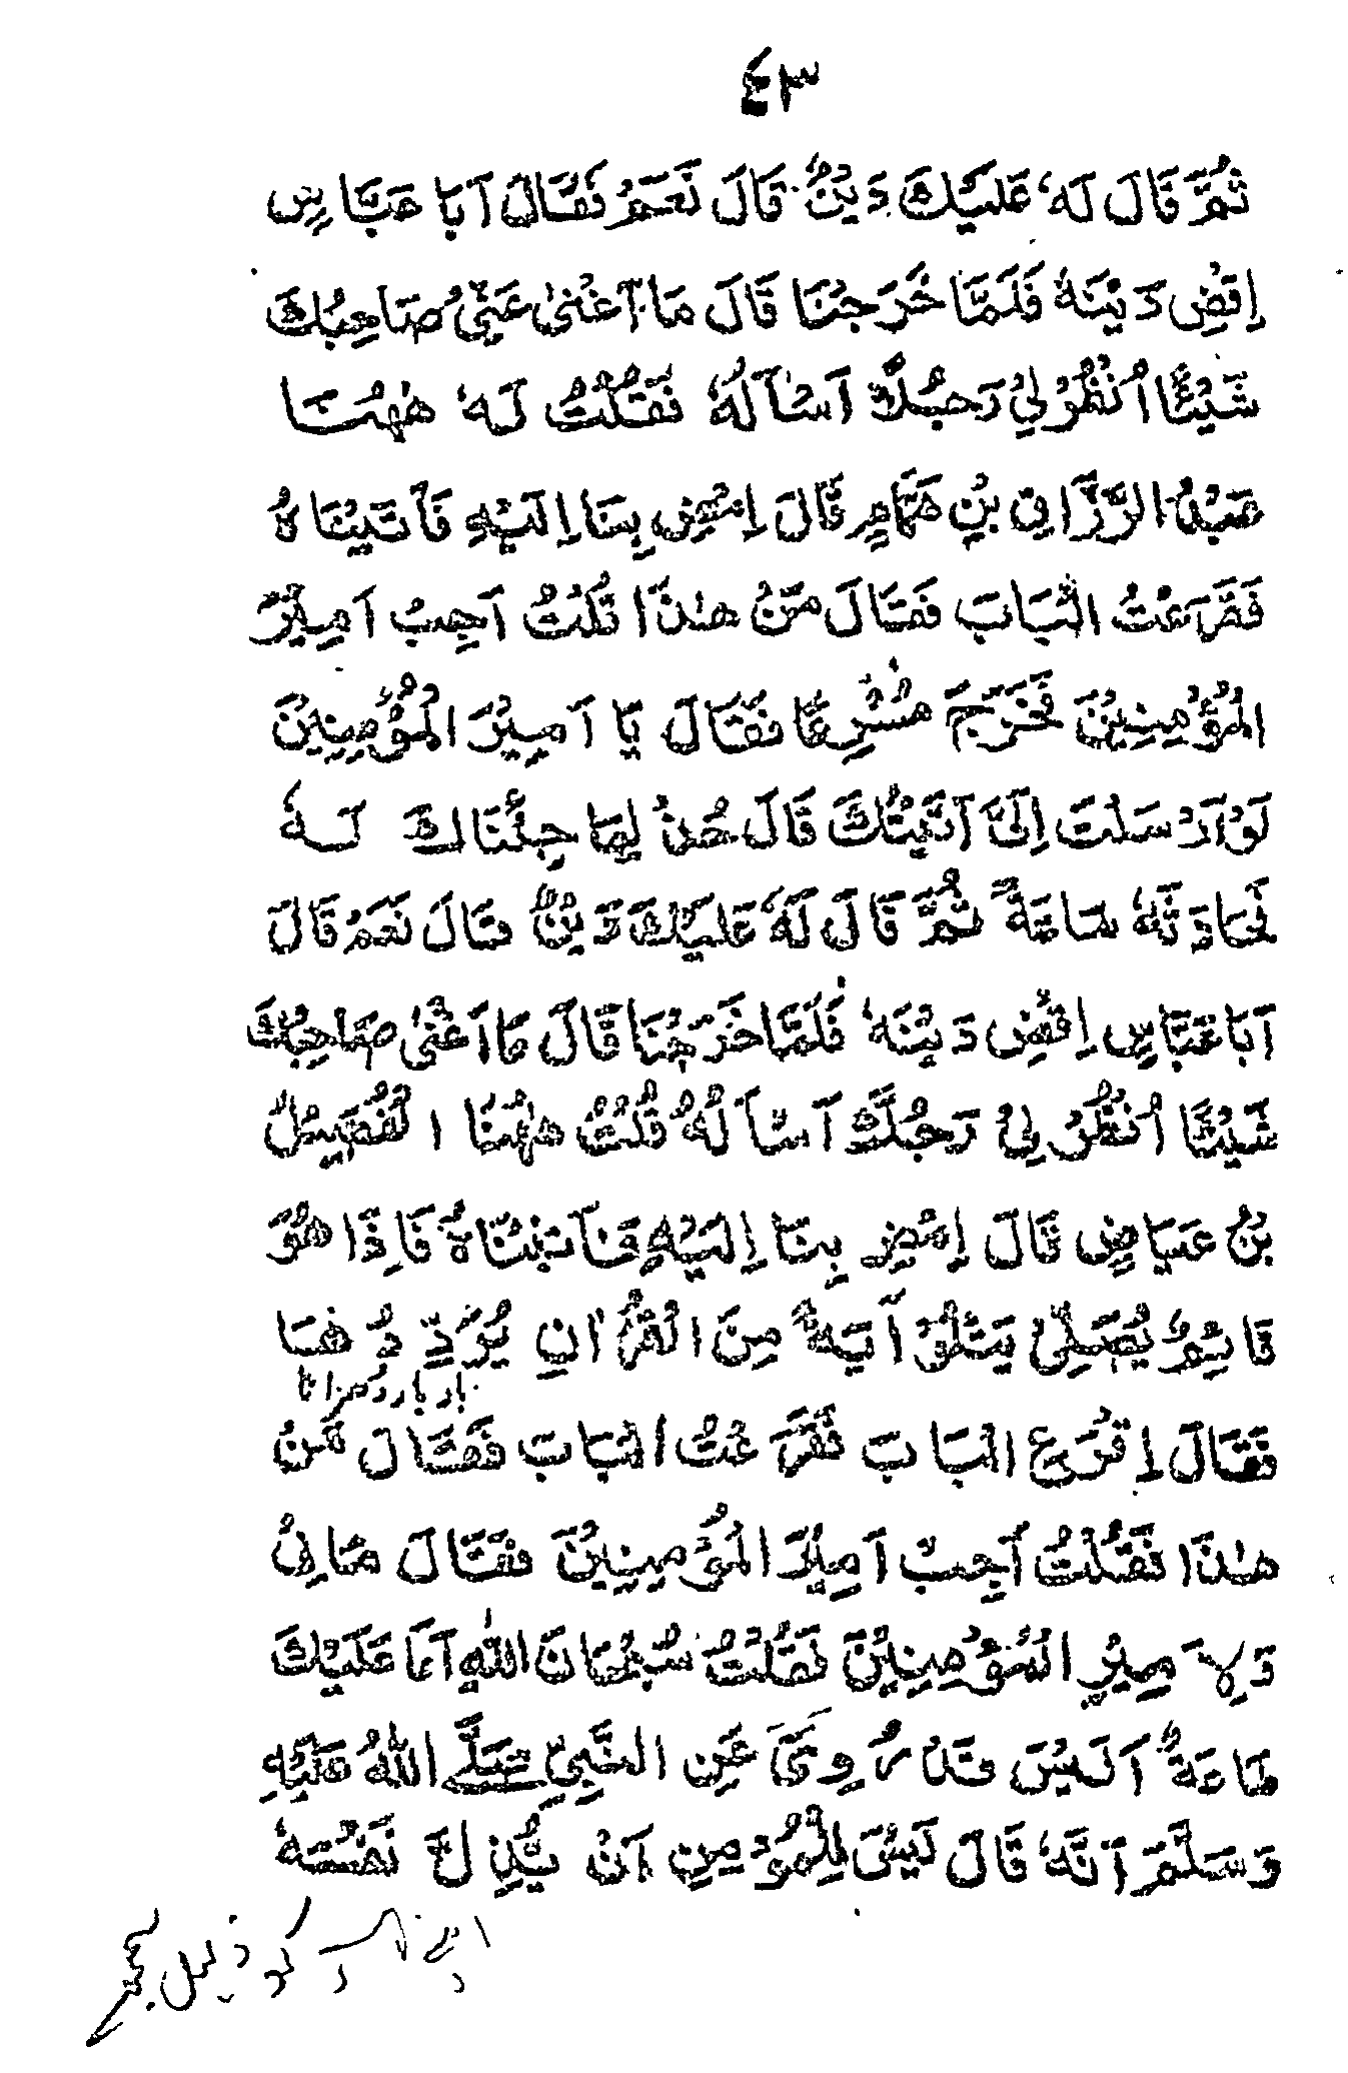 ٤٣
ثُمَّ قَالَ لَهٗ عَلَيْكَ دَيْنٌ قَالَ نَعَمْ فَقَالَ اَبَا عَبَّاسٍ
اِقْضِ دَيْنَهٗ فَلَمَّا خَرَجْنَا قَالَ مَا اَغْنٰى عَنِّيْ صَاحِبُكَ
شَيْئًا اُنْظُرْ لِيْ رَجُلًا اَسْاَلُهٗ فَقُلْتُ لَهٗ هٰهُنَا
عَبْدُ الرَّزَّاقِ بْنِ هَمَّامٍ قَالَ اِمْضِ بِنَا اِلَيْهِ فَاَتَيْنَاهُ
فَقَرَعْتُ الْبَابَ فَقَالَ مَنْ هٰذَا قُلْتُ اَجِبْ اَمِيْرَ
الْمُؤْمِنِيْنَ فَخَرَجَ مُسْرِعًا فَقَالَ يَا اَمِيْرَ الْمُؤْمِنِيْنَ
لَوْ اَرْسَلْتَ اِلَيَّ اَتَيْتُكَ قَالَ خُذْ لِمَا جِئْنَاكَ لَهٗ
فَحَادَثَهٗ سَاعَةً ثُمَّ قَالَ لَهٗ عَلَيْكَ دَيْنٌ قَالَ نَعَمْ قَالَ
اَبَا عَبَّاسٍ اِقْضِ دَيْنَهٗ فَلَمَّا خَرَجْنَا قَالَ مَا اَغْنٰى صَاحِبُكَ
شَيْئًا اُنْظُرْ لِيْ رَجُلًا اَسْاَلُهٗ قُلْتُ هٰهُنَا الْفُضَيْلُ
بْنُ عَيَاضٍ قَالَ اِمْضِ بِنَا اِلَيْهِ فَاَتَيْنَاهُ فَاِذَا هُوَ
قَائِمٌ يُصَلِّيْ يَتْلُوْ اٰيَةً مِنَ الْقُرْاٰنِ يُرَدِّدُهَا
بار بار دُہراتا
فَقَالَ اِقْرَعِ الْبَابَ فَقَرَعْتُ الْبَابَ فَقَالَ مَنْ
هٰذَا فَقُلْتُ اَجِبْ اَمِيْرَ الْمُؤْمِنِيْنَ فَقَالَ مَا لِيْ
وَلِاَمِيْرِ الْمُؤْمِنِيْنَ فَقُلْتُ سُبْحَانَ اللّٰهِ اَمَا عَلَيْكَ
طَاعَةٌ اَلَيْسَ قَدْ رُوِيَ عَنِ النَّبِيِّ صَلَّے اللّٰهُ عَلَيْهِ
وَسَلَّمَ اَنَّهٗ قَالَ لَيْسَ لِلْمُؤْمِنِ اَنْ يُّذِلَّ نَفْسَهٗ
اپنے کو ذلیل